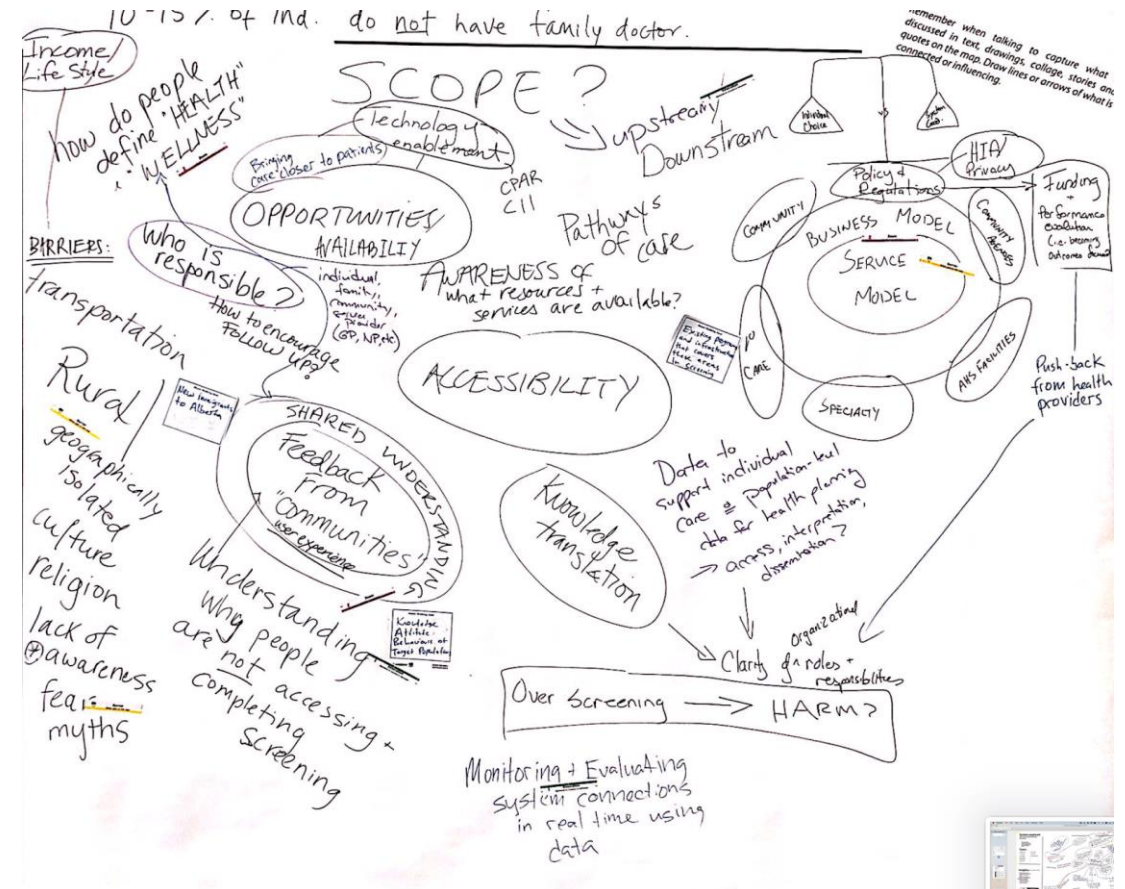 10-15% of ind. do not have family doctor.
Remember when talking to capture what
discussed in text, drawings, collage, stories and
quotes on the map. Draw lines or arrows of what is
connected or influencing.
Income/
Life Style
SCOPE?
how do people
define "HEALTH"
"WELLNESS"
Technology
enablement
Bringing
care closer to patients
CPAR
CII
upstream
Downstream
Individual
Choice
vs
System
HIA/
Privacy
Policy &
Regulations
Funding
+
Performance
evaluation
COMMUNITY
BUSINESS MODEL
SERVICE
MODEL
COMMUNITY
1°
CARE
SPECIALTY
AHS FACILITIES
OPPORTUNITIES/
AVAILABILITY
Pathways
of care
BARRIERS:
Who is
responsible?
individual,
family,
community,
provider
(GP, NP, etc)
AWARENESS OF
what resources +
services are available?
How to encourage
Follow up?
transportation
Existing programs
and infrastructure
that covers
these areas
in screening
ACCESSIBILITY
Push-back
from health
providers
Rural
geographically
isolated
culture
religion
lack of
* awareness
fear
myths
New Immigrants
to Alberta
SHARED UNDERSTANDING
Feedback
From
"Communities"
user experience
Knowledge
translation
Data to
support individual
care & population-level
data for health planning
→ access, interpretation,
dissemination?
Understanding
Why people
are not accessing +
completing
screening
Knowledge
Attitude
Behaviours of
Target Population
organizational
Clarity of ^ roles +
responsibilities
Over Screening → HARM?
Monitoring + Evaluating
system connections
in real time using
data